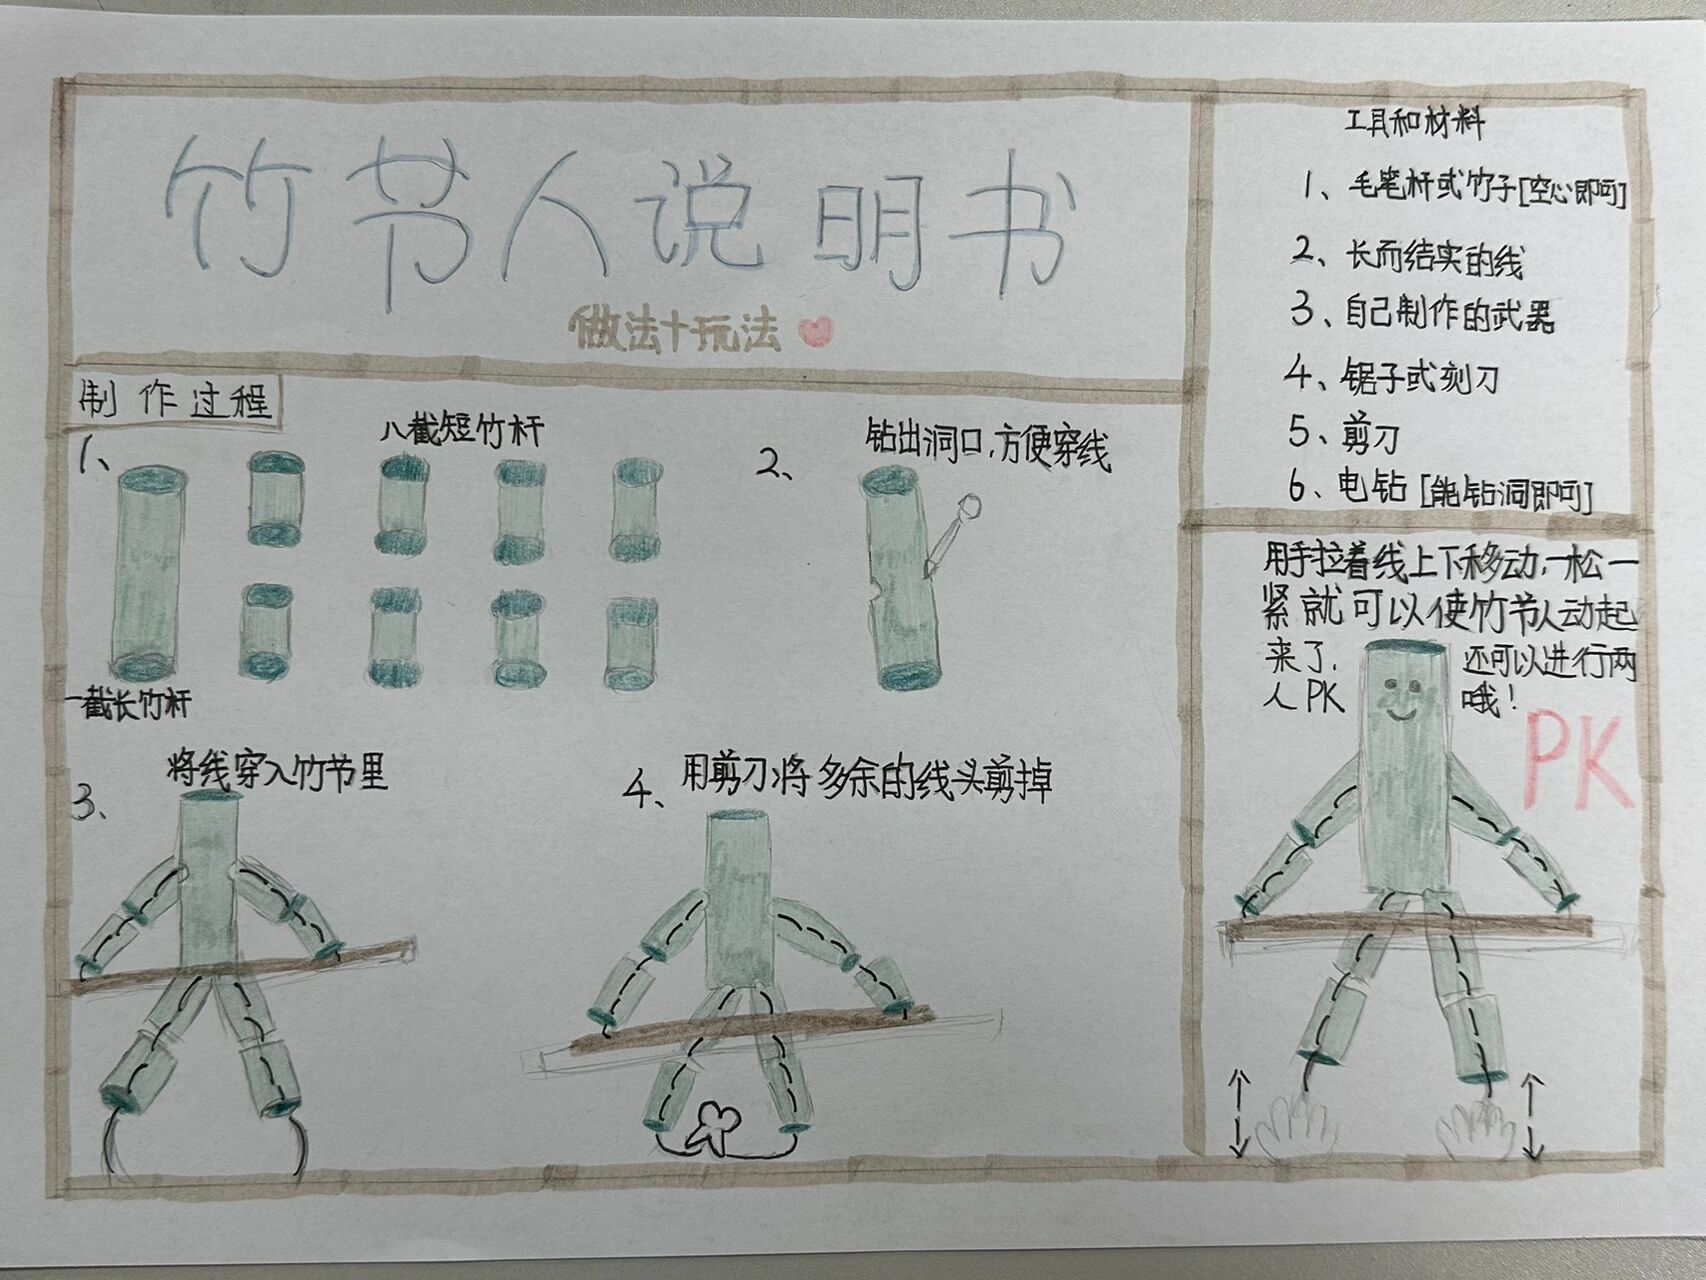 竹节人说明书
做法+玩法
工具和材料
1、毛笔杆或竹子[空心即可]
2、长而结实的线
3、自己制作的武器
4、锯子或刻刀
5、剪刀
6、电钻[能钻洞即可]
制作过程
1、
八截短竹杆
一截长竹杆
2、
钻出洞口,方便穿线
3、
将线穿入竹节里
4、用剪刀将多余的线头剪掉
用手拉着线上下移动,一松一
紧就可以使竹节人动起
来了, 还可以进行两
人PK 哦!
PK